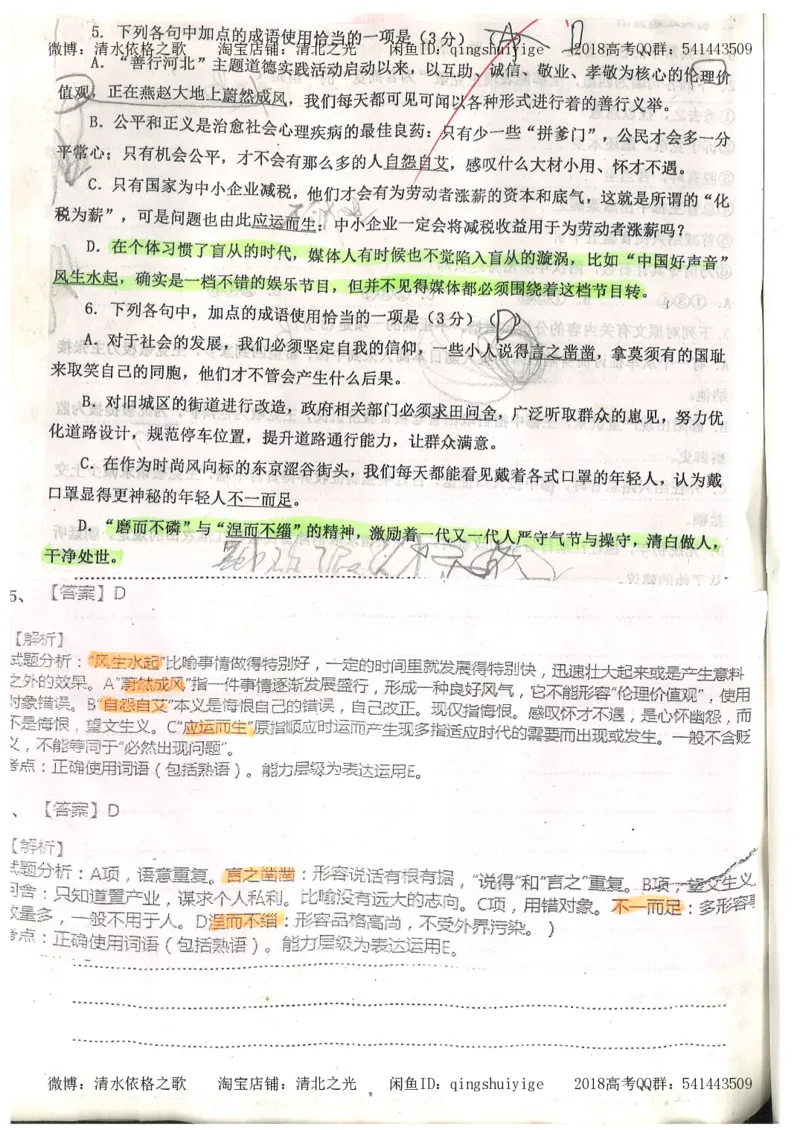 5. 下列各句中加点的成语使用恰当的一项是(3分)(A) D
微博:清水依格之歌 淘宝店铺:清北之光 闲鱼ID:qingshuiyige 2018高考QQ群:541443509
A. “善行河北”主题道德实践活动启动以来,以互助、诚信、敬业、孝敬为核心的伦理价
值观,正在燕赵大地上蔚然成风,我们每天都可见可闻以各种形式进行着的善行义举。
B. 公平和正义是治愈社会心理疾病的最佳良药:只有少一些“拼爹门”,公民才会多一分
平常心;只有机会公平,才不会有那么多的人自怨自艾,感叹什么大材小用、怀才不遇。
C. 只有国家为中小企业减税,他们才会有为劳动者涨薪的资本和底气,这就是所谓的“化
税为薪”,可是问题也由此应运而生:中小企业一定会将减税收益用于为劳动者涨薪吗?
D. 在个体习惯了盲从的时代,媒体人有时候也不觉陷入盲从的漩涡,比如“中国好声音”
风生水起,确实是一档不错的娱乐节目,但并不见得媒体都必须围绕着这档节目转。
6. 下列各句中,加点的成语使用恰当的一项是(3分)(D)
A. 对于社会的发展,我们必须坚定自我的信仰,一些小人说得言之凿凿,拿莫须有的国耻
来取笑自己的同胞,他们才不管会产生什么后果。
B. 对旧城区的街道进行改造,政府相关部门必须求田问舍,广泛听取群众的意见,努力优
化道路设计,规范停车位置,提升道路通行能力,让群众满意。
C. 在作为时尚风向标的东京涩谷街头,我们每天都能看见戴着各式口罩的年轻人,认为戴
口罩显得更神秘的年轻人不一而足。
D. “磨而不磷”与“涅而不缁”的精神,激励着一代又一代人严守气节与操守,清白做人,
干净处世。
5、 【答案】D
【解析】
试题分析:“风生水起”比喻事情做得特别好,一定的时间里就发展得特别快,迅速壮大起来或是产生意料
之外的效果。A“蔚然成风”指一件事情逐渐发展盛行,形成一种良好风气,它不能形容“伦理价值观”,使用
对象错误。B“自怨自艾”本义是悔恨自己的错误,自己改正。现仅指悔恨。感叹怀才不遇,是心怀幽怨,而
不是悔恨,望文生义。C“应运而生”原指顺应时运而产生现多指适应时代的需要而出现或发生。一般不含贬
义,不能等同于“必然出现问题”。
考点:正确使用词语(包括熟语)。能力层级为表达运用E。
、 【答案】D
【解析】
试题分析:A项,语意重复。言之凿凿:形容说话有根有据,“说得”和“言之”重复。B项,望文生义
问舍:只知道置产业,谋求个人私利。比喻没有远大的志向。C项,用错对象。不一而足:多形容事
数量多,一般不用于人。D涅而不缁:形容品格高尚,不受外界污染。)
考点:正确使用词语(包括熟语)。能力层级为表达运用E。
微博:清水依格之歌 淘宝店铺:清北之光 闲鱼ID:qingshuiyige 2018高考QQ群:541443509